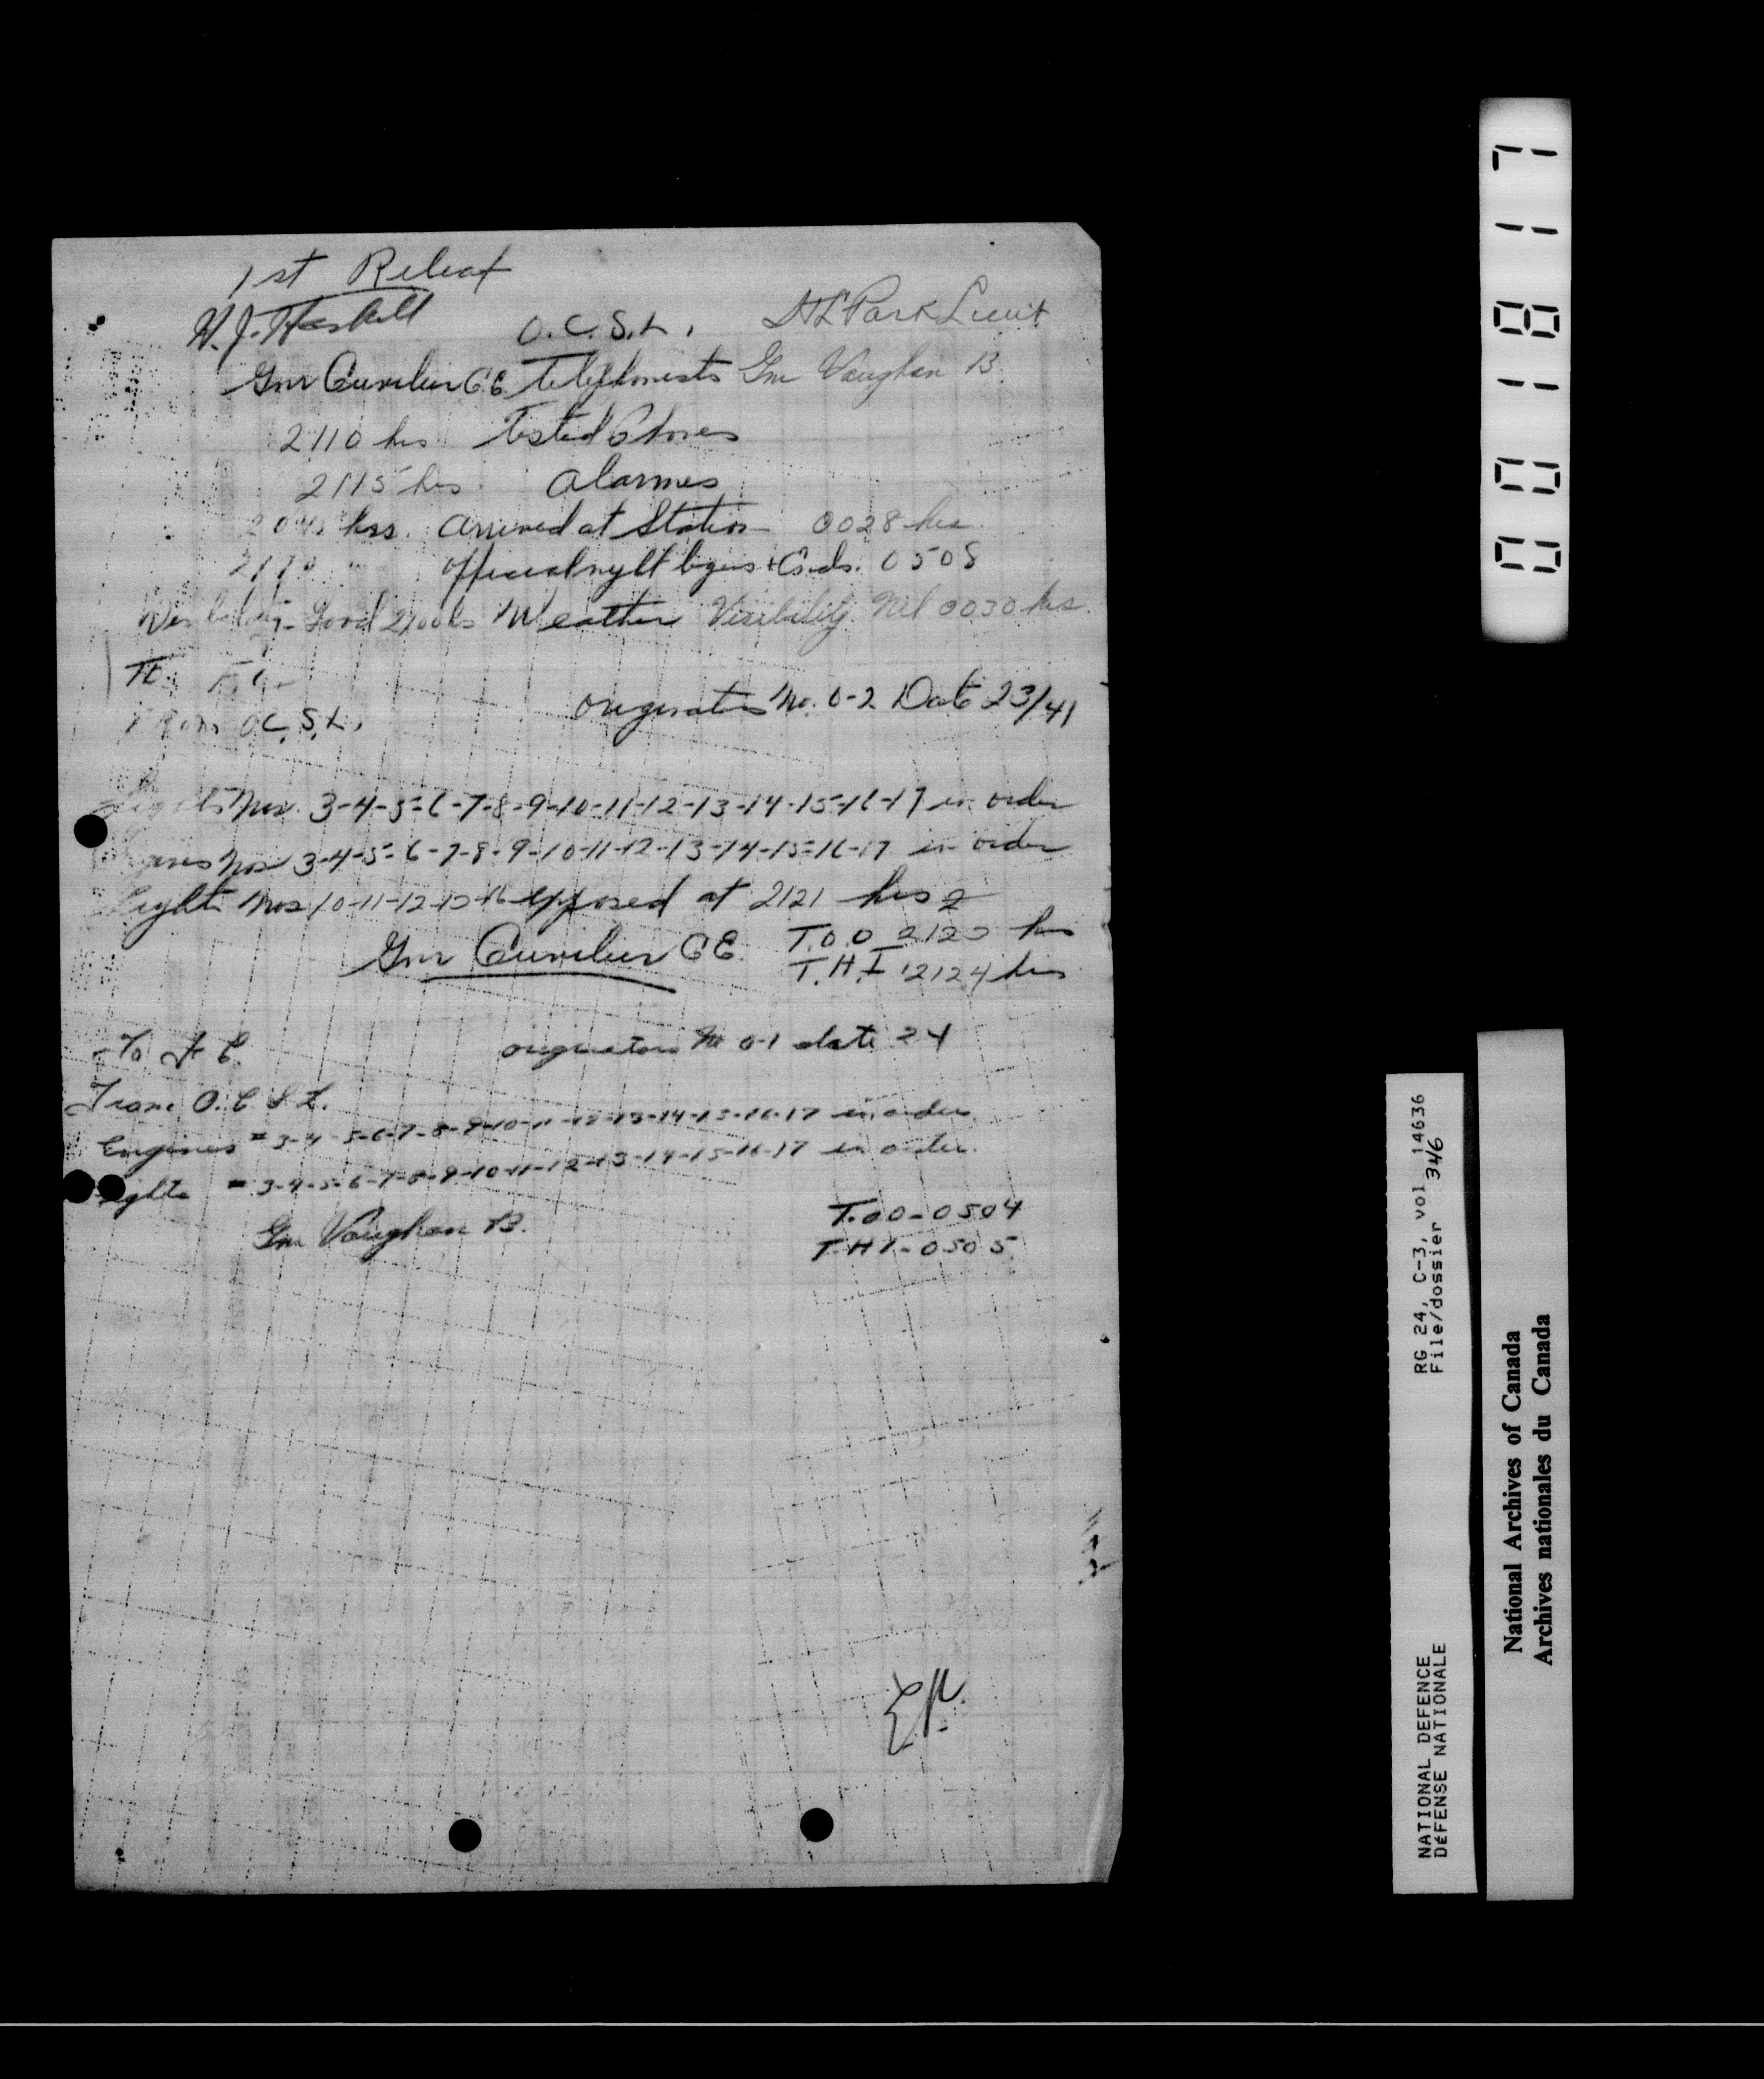 1st Releaf
H.J. Haskell O.C.S.L. H L Park Lieut
Gnr Cuvilier C E Telephonists Gnr Vaughan B.
2110 hrs Tested Phones
2115 hrs Alarmes
2045 hrs. Arrived at Station 0028 hrs
2110 " Official nyht begins + Ends. 0505
Visibility - Good 2100 hrs Weather Visibility Nil 0030 hrs.
To. F.C.
From O.C.S.L. Originators No. 0-2 Date 23/41
Lights Nos. 3-4-5-6-7-8-9-10-11-12-13-14-15-16-17 in order
Engines Nos 3-4-5-6-7-8-9-10-11-12-13-14-15-16-17 in order
Lights Nos 10-11-12-15-16 epposed at 2121 hrs
Gnr Cuvilier C E. T.O.O 2123 hrs
T.H.I 2124 hrs
To F C. originators No 0-1 date 24
From O.C.S.L.
Engines = 3-4-5-6-7-8-9-10-11-12-13-14-15-16-17 in order.
Lights = 3-4-5-6-7-8-9-10-11-12-13-14-15-16-17 in order.
Gnr Vaughan B. T.OO-0504
T H I-0505
0001817
RG 24, C-3, vol 14636
File/dossier 346
NATIONAL DEFENCE
DÉFENSE NATIONALE
National Archives of Canada
Archives nationales du Canada